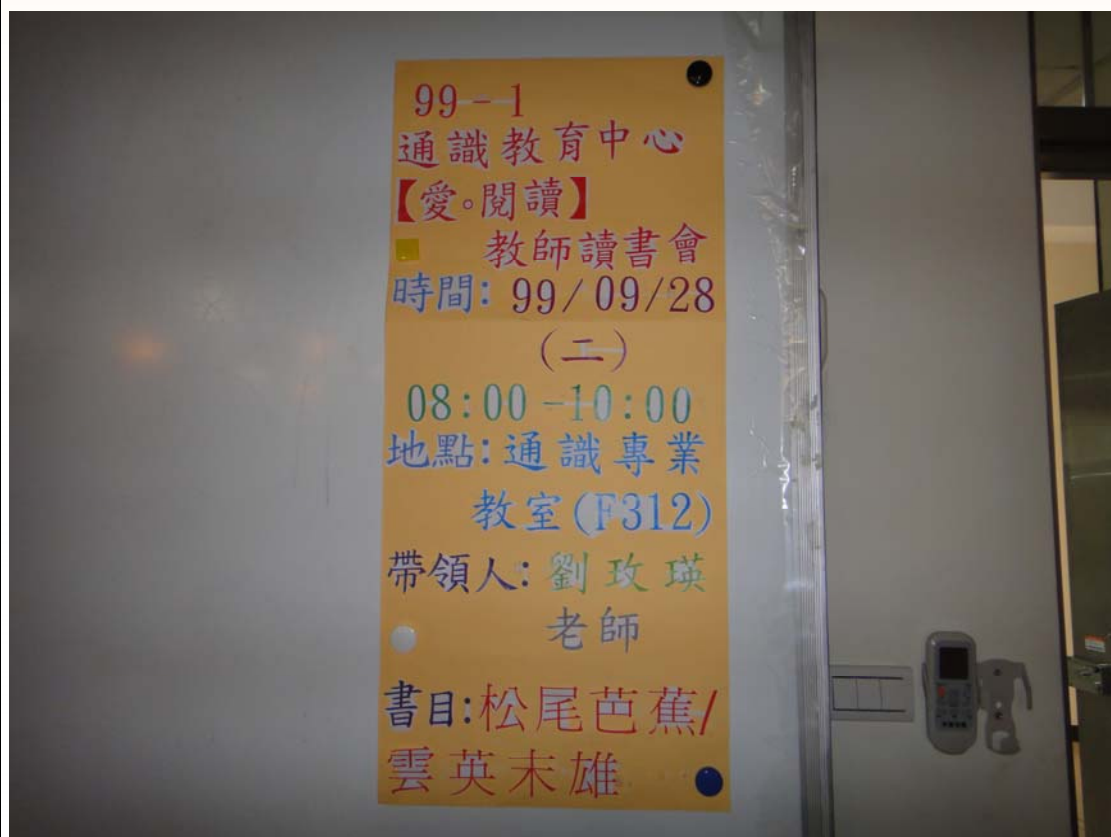 99-1
通識教育中心
【愛。閱讀】
教師讀書會
時間：99/09/28
(二)
08:00-10:00
地點：通識專業
教室(F312)
帶領人：劉玫瑛
老師
書目：松尾芭蕉/
雲英末雄